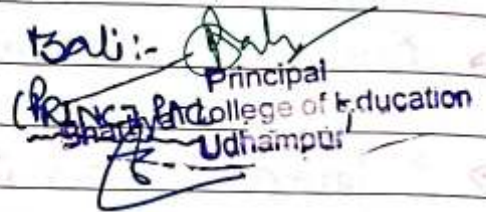 Bali:-
Principal
(PRINCIPAL College of Education
Udhampur